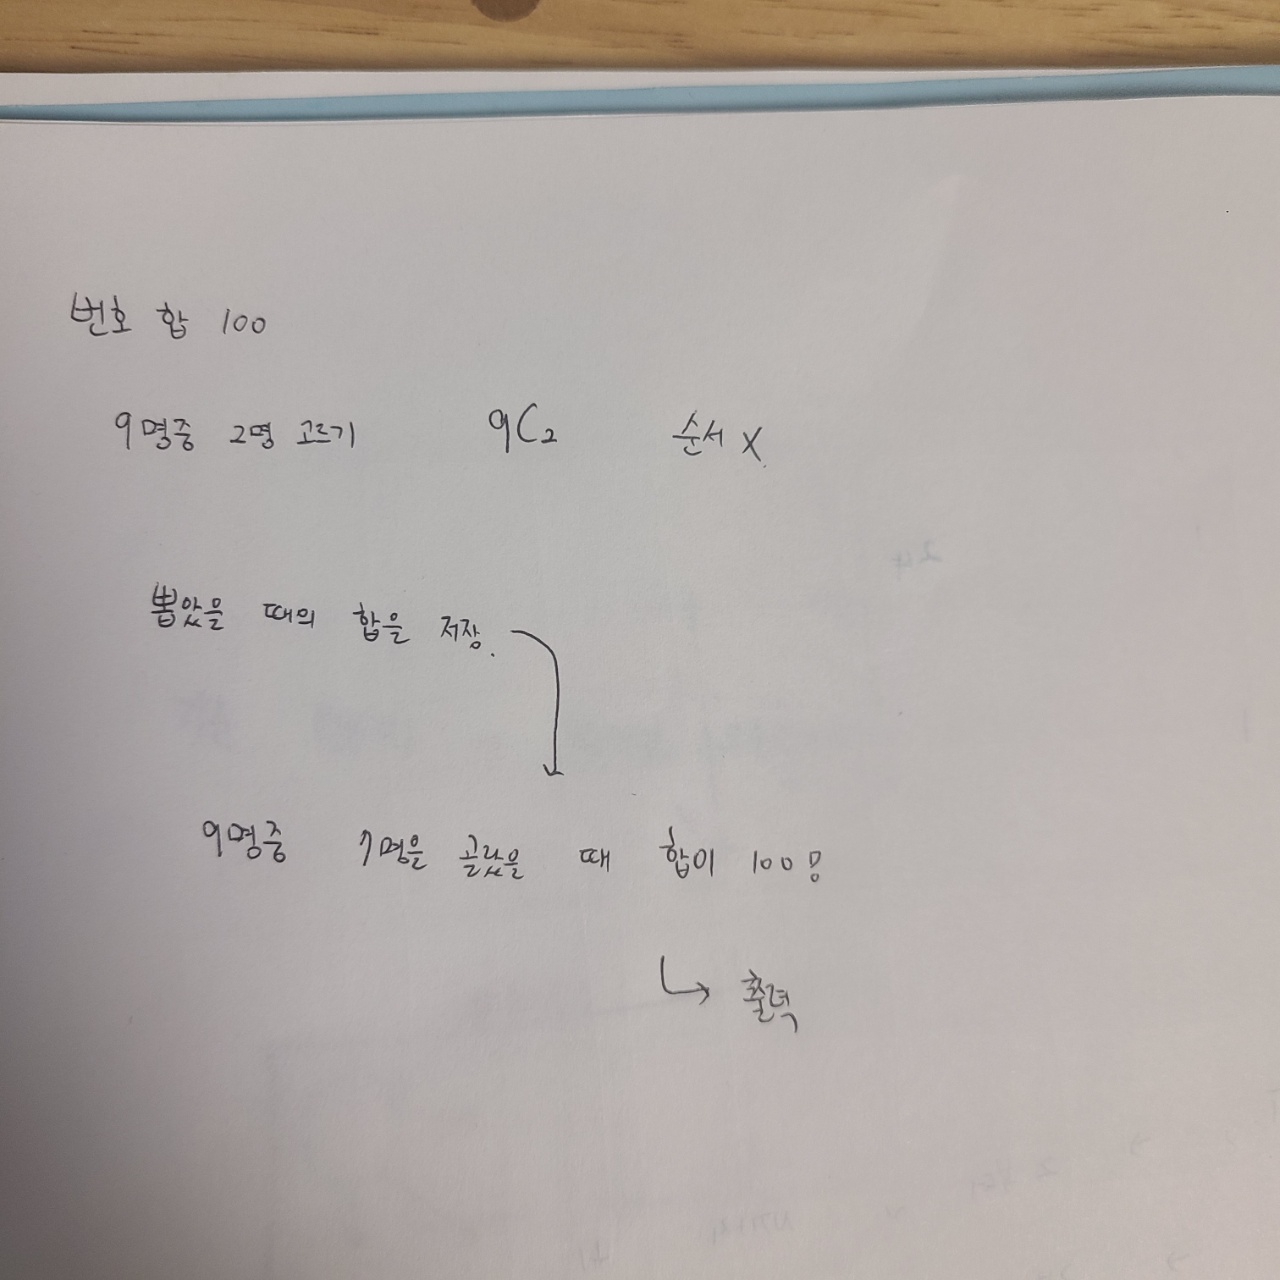 번호 합 100
9명중 2명 고르기 9C2 순서 X
뽑았을 때의 합을 저장.
9명중 7명을 골랐을 때 합이 100!
↳ 출력